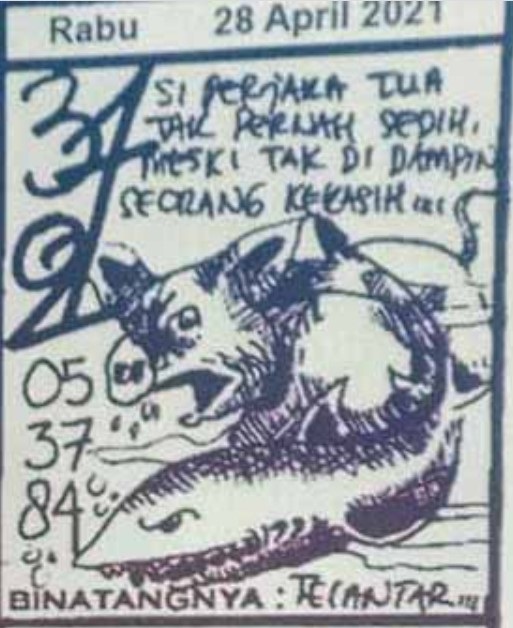 Rabu 28 April 2021
SI PERJAKA TUA
TAK PERNAH SEDIH,
MESKI TAK DI DAMPIN
SEORANG KEKASIH...
05
37
84
BINATANGNYA : TELANTAR...